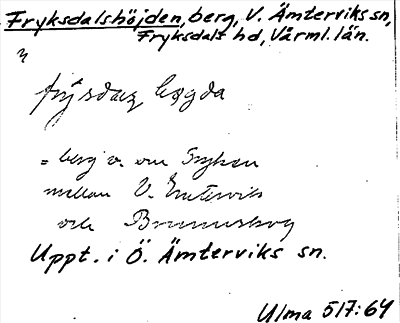 Fryksdalshöjden, berg, V. Ämterviks sn,
Fryksdals hd, Värml. län.
= berg v. om Fryken
mellan V. Emtervik
och Brunnsberg
Uppt. i Ö. Ämterviks sn.
Ulma 517:64